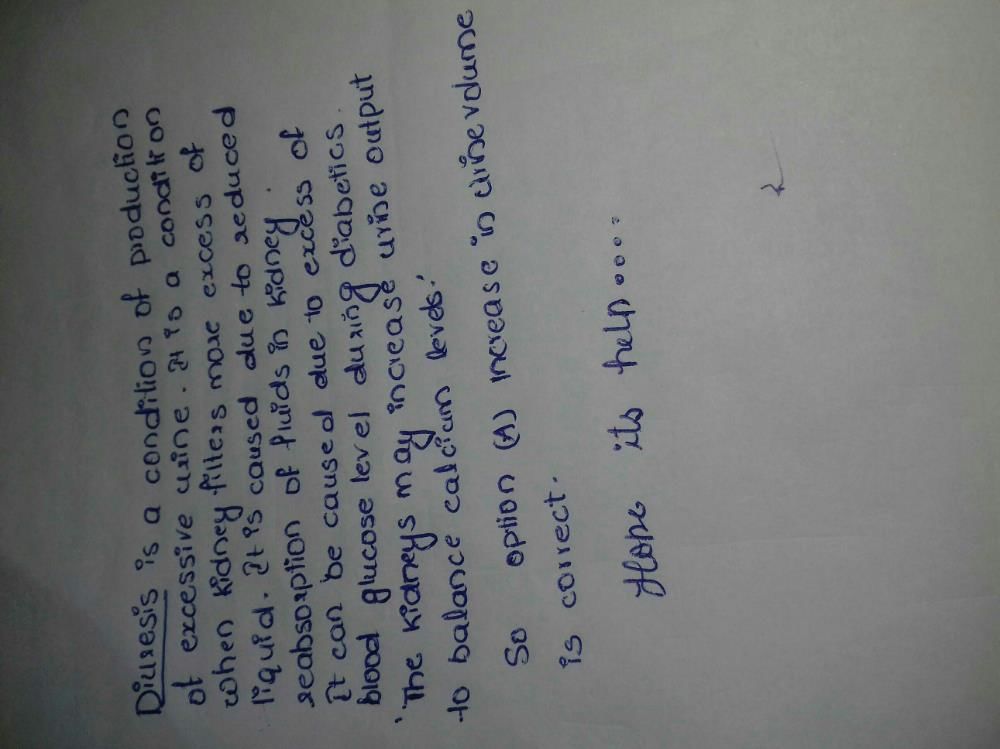 Diuresis is a condition of production
of excessive urine. It is a condition
when kidney filters more excess of
liquid. It is caused due to reduced
reabsorption of fluids in kidney.
It can be caused due to excess of
blood glucose level during diabetics.
'The kidneys may increase urine output
to balance calcium levels.'
So option (A) increase in urine volume
is correct.
Hope its help.....